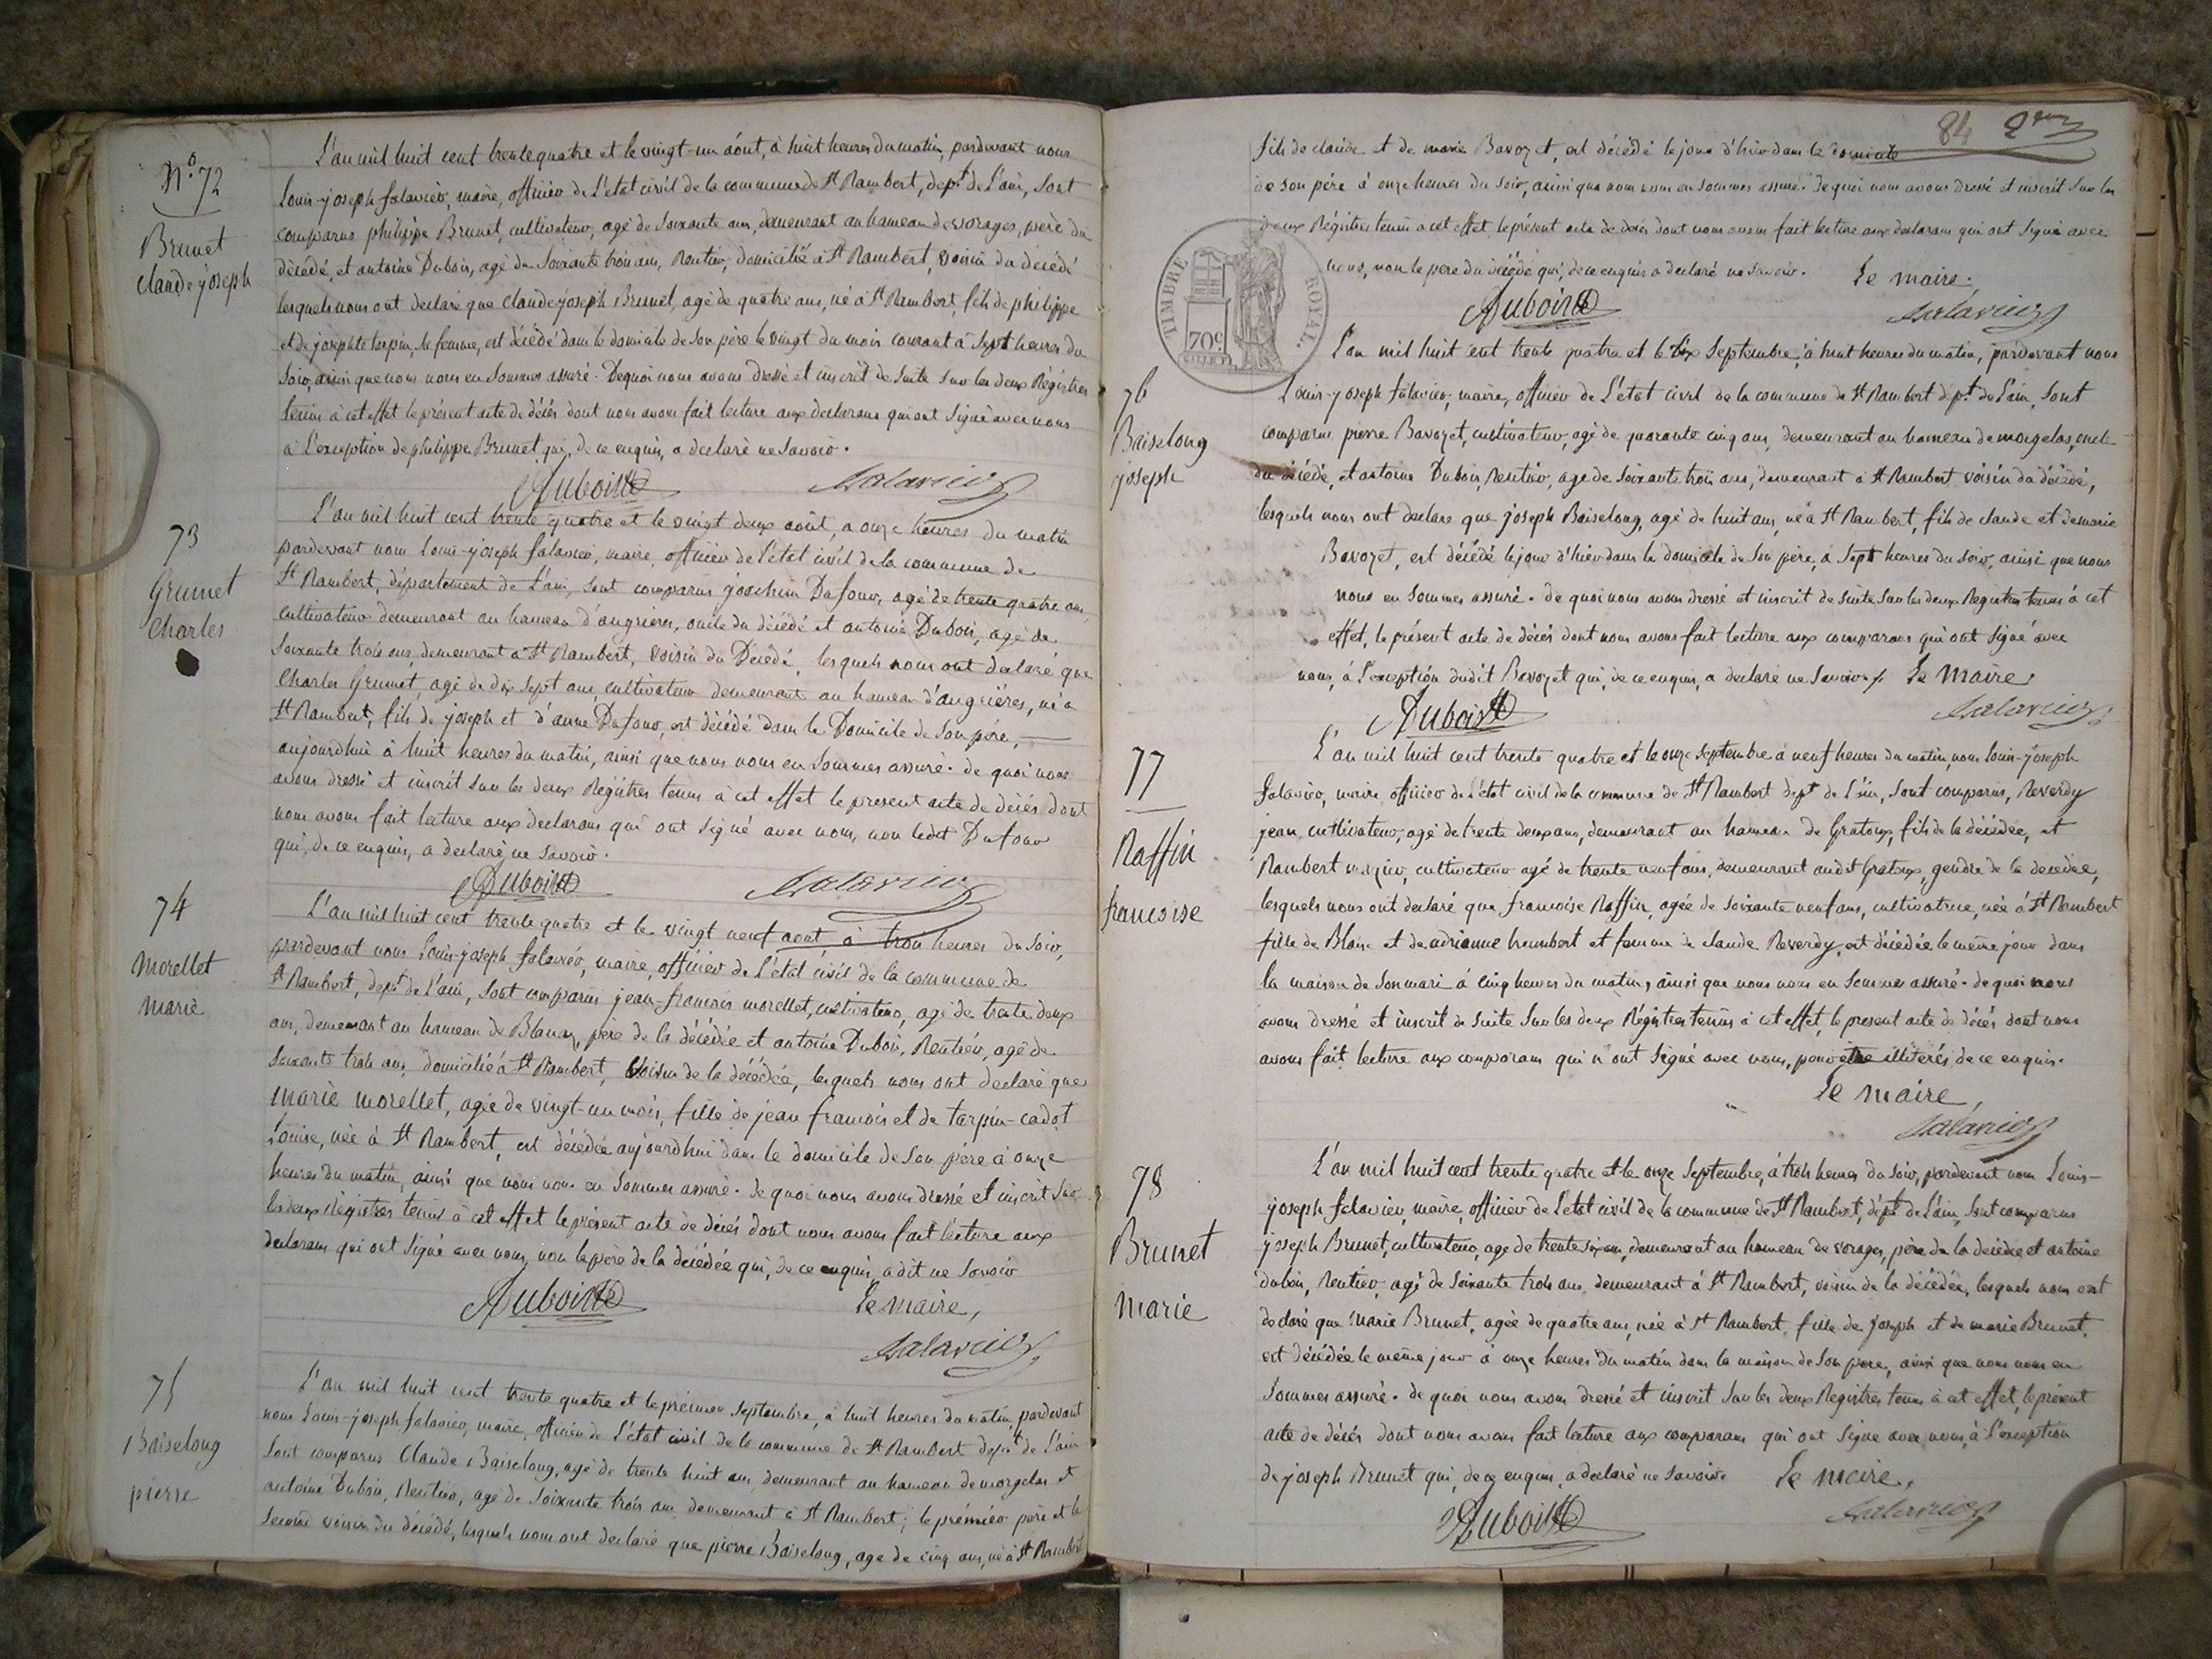 N.º 72
Brunet
Claude joseph
L'an mil huit cent trente quatre et le vingt-un août, à huit heures du matin, pardevant nous
Louis-joseph falavier, maire, officier de L'état civil de la commune de St Rambert, dept de L'ain, Sont
comparus philippe Brunet, cultivateur, agé de Soixante ans, demeurant au hameau de vorages, père du
décédé, et antoine Dubois, agé de Soixante trois ans, Rentier, domicilié à St Rambert, voisin du décédé
lesquels nous ont declaré que Claude joseph Brunet, agé de quatre ans, né à St Rambert, fils de philippe
et de josephte tarpin, sa femme, est décédé dans le domicile de Son père le vingt du mois courant à Sept heures du
Soir, ainsi que nous nous en Sommes assuré. De quoi nous avons dressé et inscrit de Suite Sur les deux Régistres
tenus à cet effet le présent acte de décés dont nous avons fait lecture aux declarans qui ont Signé avec nous
à L'exception de philippe Brunet qui, de ce enquis, a declaré ne Savoir.
Dubois
falavier
73
Grumet
Charles
L'an mil huit cent trente quatre et le vingt deux août, a onze heures du matin
pardevant nous Louis-joseph falavier, maire, officier de L'état civil de la commune de
St Rambert, département de L'ain, Sont comparus joachim Dufour, agé de trente quatre ans
cultivateur demeurant au hameau d'angrieres, oncle du décédé et antoine Dubois, agé de
Soixante trois ans, demeurant à St Rambert, voisin du Décédé, lesquels nous ont declaré que
Charles Grumet, agé de dix sept ans, cultivateur demeurant au hameau d'angrières, né à
St Rambert, fils de joseph et d'anne Dufour, est décédé dans le Domicile de Son père,
aujourdhui à huit heures du matin, ainsi que nous nous en Sommes assuré. de quoi nous
avons dressé et inscrit Sur les deux Régistres tenus à cet effet le present acte de décés dont
nous avons fait lecture aux declarans qui ont Signé avec nous, non ledit Dufour
qui, de ce enquis, a declaré ne Savoir.
Dubois
falavier
74
Morellet
Marie
L'an mil huit cent trente quatre et le vingt neuf août à trois heures du Soir,
pardevant nous Louis-joseph falavier, maire, officier de L'état civil de la commune de
St Rambert, dept de L'ain, Sont comparus jean-francois morellet, cultivateur, agé de trente deux
ans, demeurant au hameau de Blanaz, père de la décédée et antoine Dubois, Rentier, agé de
Soixante trois ans, domicilié à St Rambert, Voisin de la décédée, lesquels nous ont declaré que
Marie Morellet, agée de vingt-un mois, fille de jean francois et de tarpin-cadot
Louise, née à St Rambert, est décédée aujourdhui dans le domicile de Son père à onze
heures du matin, ainsi que nous nous en Sommes assuré. de quoi nous avons dressé et inscrit Sur
les deux Régistres tenus à cet effet le présent acte de décés dont nous avons fait lecture aux
declarans qui ont Signé avec nous, non le père de la décédée qui, de ce enquis, a dit ne Savoir
Dubois
Le Maire,
falavier
75
Baiselong
pierre
L'an mil huit cent trente quatre et le premier Septembre, à huit heures du matin, pardevant
nous Louis-joseph falavier, maire, officier de L'état civil de la commune de St Rambert dept de L'ain
Sont comparus Claude Baiselong, agé de trente huit ans, demeurant au hameau de morgelas et
antoine Dubois, Rentier, agé de Soixante trois ans demeurant à St Rambert; le prémier père et le
Second voisin du décédé, lesquels nous ont declaré que pierre Baiselong, agé de cinq ans, né à St Rambert
84
fils de claude et de marie Bavozet, est décédé le jour d'hier dans le domicile
de Son père à onze heures du Soir, ainsi que nous nous en Sommes assuré. de quoi nous avons dressé et inscrit Sur les
deux Régistres tenus à cet effet, le présent acte de décès dont nous avons fait lecture aux declarans qui ont Signé avec
nous, non le pere du décédé qui, de ce enquis a declaré ne Savoir. Le maire.
TIMBRE ROYAL.
70c
Dubois
falavier
76
Baiselong
joseph
L'an mil huit cent trente quatre et le dix Septembre, à huit heures du matin, pardevant nous
Louis-joseph falavier, maire, officier de L'état civil de la commune de St Rambert dept de L'ain, Sont
comparus pierre Bavozet, cultivateur, agé de quarante cinq ans, demeurant au hameau de morgelas, oncle
du décédé, et antoine Dubois, Rentier, agé de Soixante trois ans, demeurant à St Rambert, voisin du décédé,
lesquels nous ont declaré que joseph Baiselong, agé de huit ans, né à St Rambert, fils de claude et de marie
Bavozet, est décédé le jour d'hier dans le domicile de Son père, à Sept heures du Soir, ainsi que nous
nous en Sommes assuré. de quoi nous avons dressé et inscrit de Suite Sur les deux Régistres tenus à cet
effet, le présent acte de décés dont nous avons fait lecture aux comparans qui ont Signé avec
nous, à L'exception dudit Bavozet qui, de ce enquis, a declaré ne Savoir. Le Maire.
Dubois
falavier
77
Raffin
francoise
L'an mil huit cent trente quatre et le onze Septembre à neuf heures du matin, nous Louis-joseph
falavier, maire, officier de L'état civil de la commune de St Rambert dept de L'ain, Sont comparus, Reverdy
jean, cultivateur, agé de trente deux ans, demeurant au hameau de Gratoux, fils de la décédée, et
Rambert cultivateur agé de trente neuf ans, demeurant audit Gratoux, gendre de la decedée,
lesquels nous ont declaré que francoise Raffin, agée de Soixante neuf ans, cultivatrice, née à St Rambert
fille de Blaise et de adrianne humbert et femme de claude Reverdy, est décédée le même jour dans
la maison de Son mari à cinq heures du matin, ainsi que nous nous en Sommes assuré. de quoi nous
avons dressé et inscrit de Suite Sur les deux Régistres tenus à cet effet, le present acte de décés dont nous
avons fait lecture aux comparans qui n'ont Signé avec nous, pour être illiterés de ce enquis.
Le Maire,
falavier
78
Brunet
Marie
L'an mil huit cent trente quatre et le onze Septembre, à trois heures du Soir, pardevant nous Louis-
joseph falavier, maire, officier de L'état civil de la commune de St Rambert, dépt de L'ain, Sont comparus
joseph Brunet, cultivateur, agé de trente six ans, demeurant au hameau de vorages, père de la décédée et antoine
dubois, Rentier, agé de Soixante trois ans, demeurant à St Rambert, voisin de la décédée, lesquels nous ont
declaré que Marie Brunet, agée de quatre ans, née à St Rambert, fille de joseph et de marie Brunet,
est décédée le même jour à onze heures du matin dans la maison de Son pere, ainsi que nous nous en
Sommes assuré. de quoi nous avons dressé et inscrit Sur les deux Registres tenus à cet effet, le présent
acte de décés dont nous avons fait lecture aux comparans qui ont Signé avec nous, à L'exception
de joseph Brunet qui, de ce enquis, a declaré ne Savoir. Le Maire,
Dubois
falavier